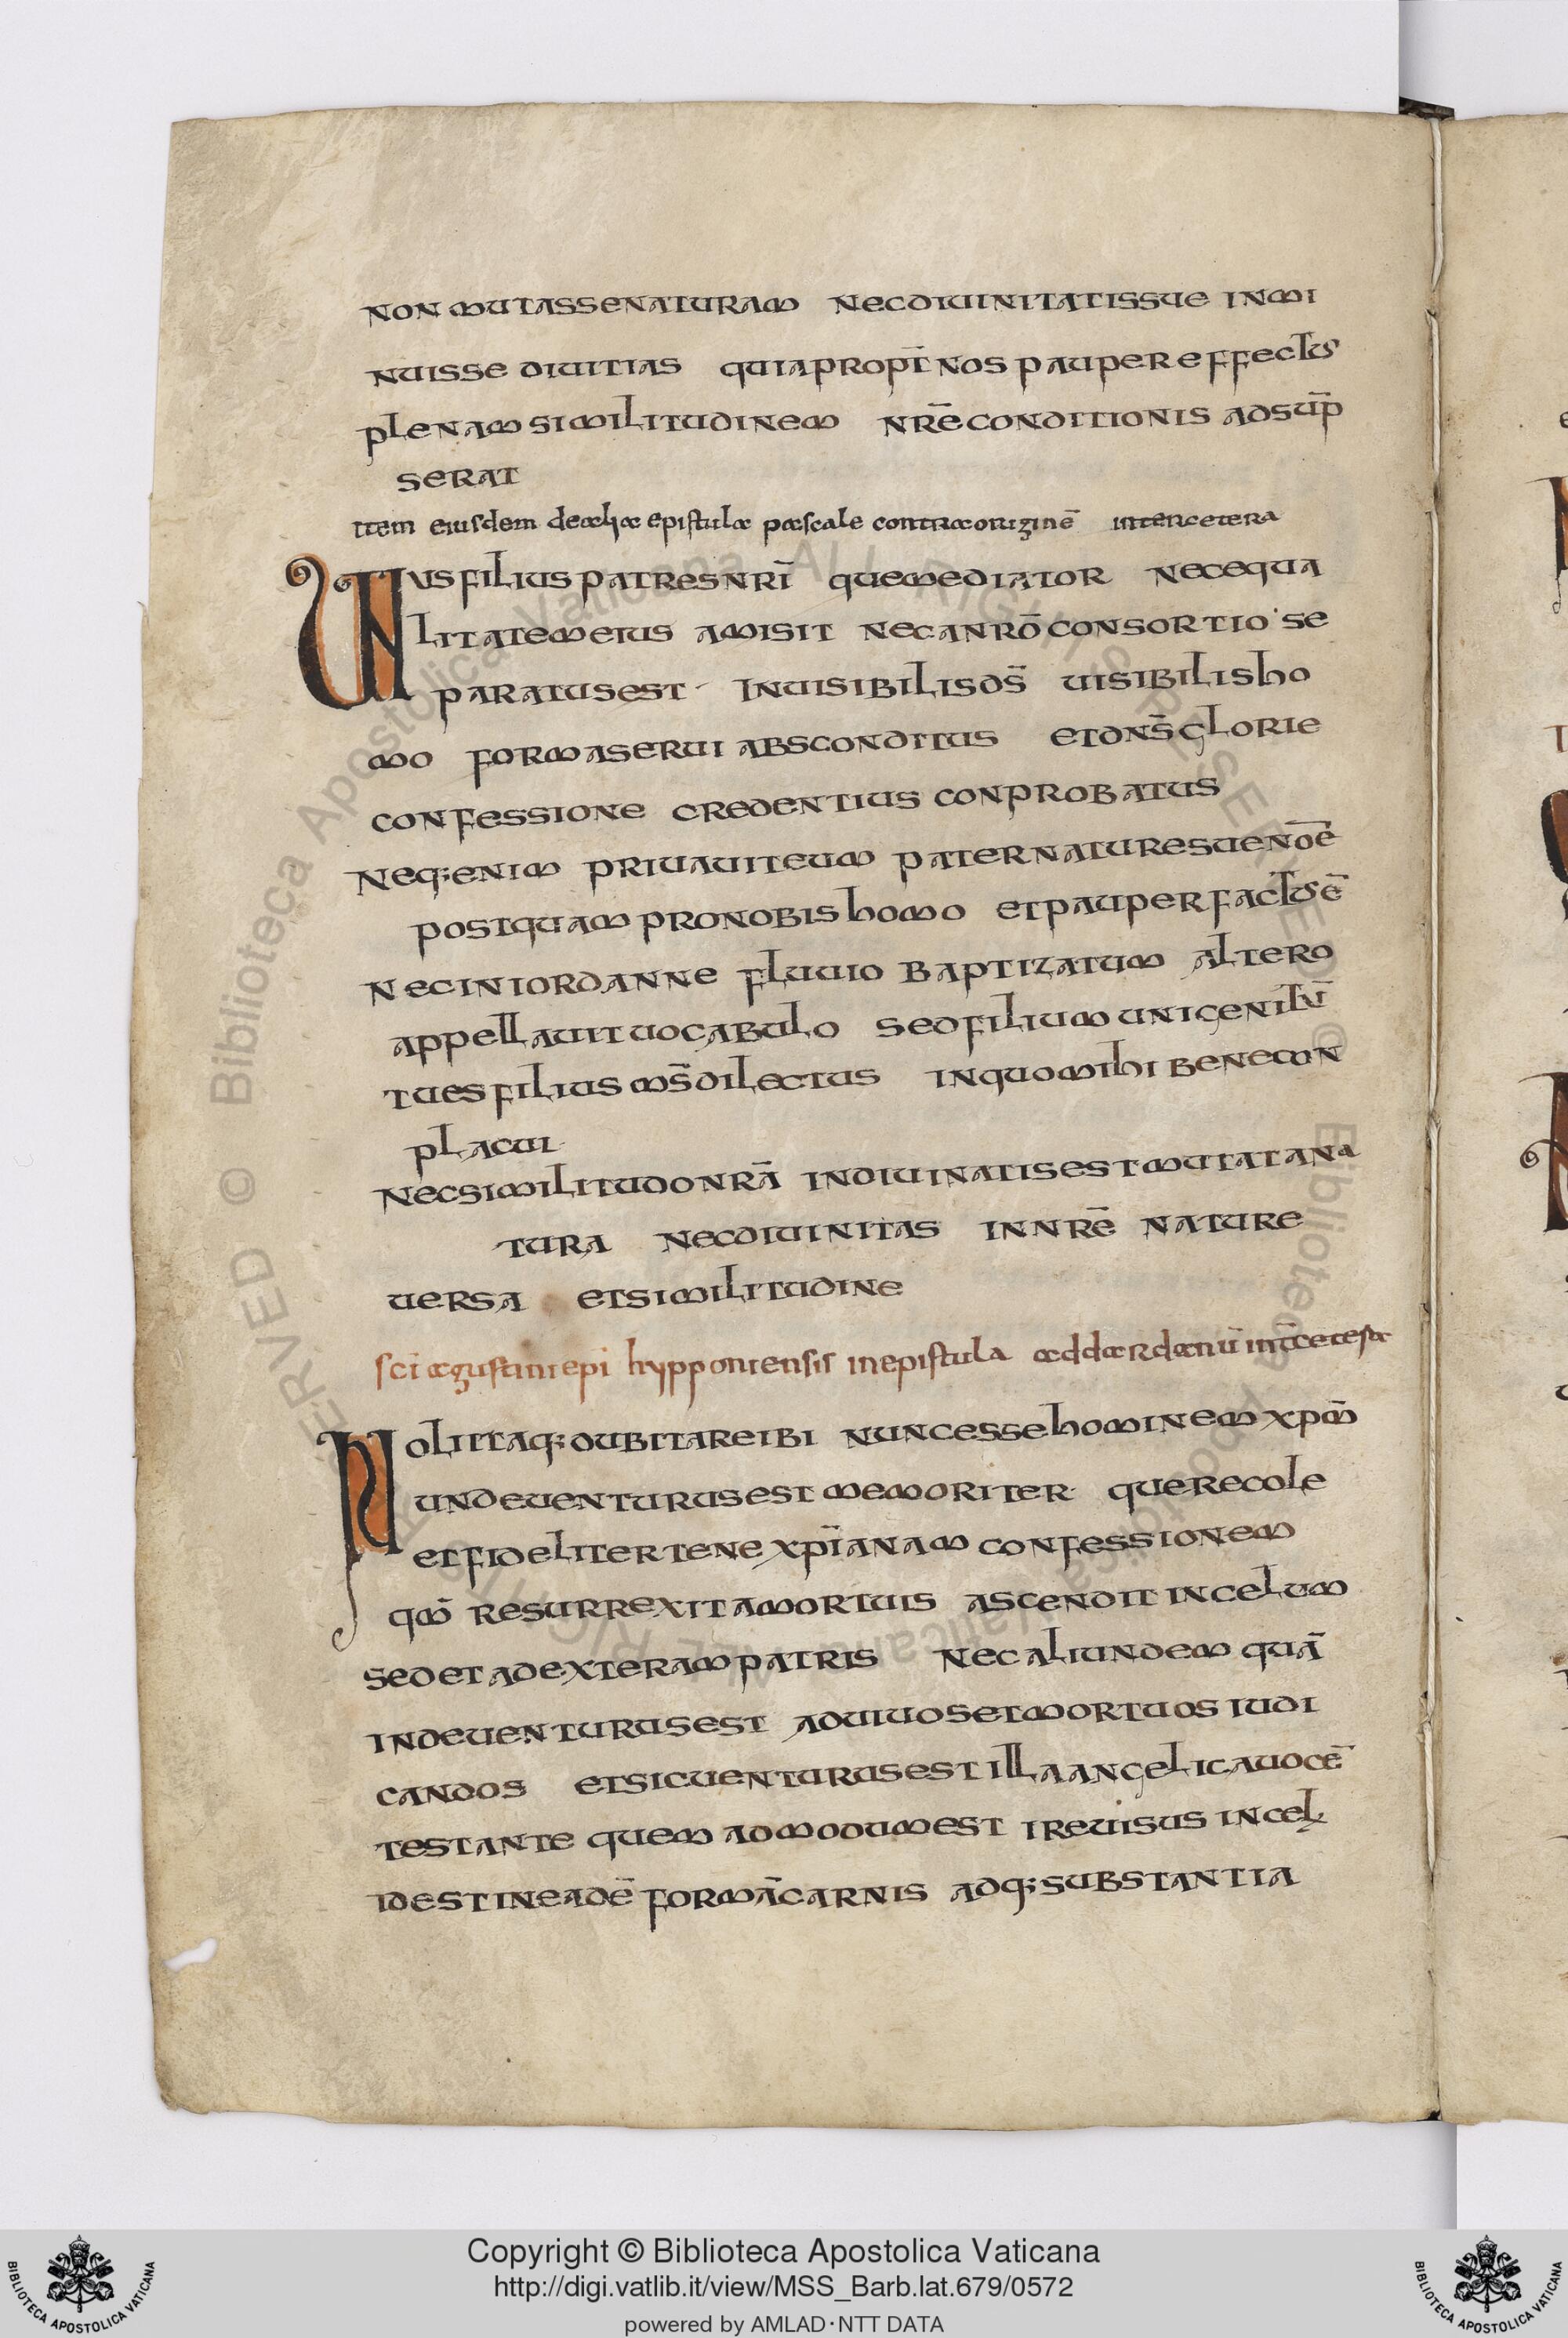 non mutasse naturam nec diuinitatis sue inmi
nuisse diuitias quia propt̄ nos pauper effectus
plenam similitudinem nr̄e conditionis adsūp
serat
item eiusdem de alia epistula pascale contra originē inter cetera
Unus filius patres nr̄i que mediator nec equa
litatem eius amisit nec a nr̄o consortio se
paratus est inuisibilis ds̄ uisibilis ho
mo forma serui absconditus et dns̄ glorie
confessione credentius conprobatus
Neq; enim priuauit eum pater nature sue nōe
postquam pro nobis homo et pauper factus ē
nec in iordanne fluuio baptizatum altero
appellauit uocabulo sed filium unigenitū
tu es filius ms̄ dilectus in quo mihi bene con
placui
Nec similitudo nr̄a in diuinatis est mutata na
tura nec diuinitas in nr̄e nature
uersa et similitudine
sc̄i agustini ep̄i hypponiensis in epistula ad dardanū int̄ cetera
Noli itaq; dubitare ibi nunc esse hominem xp̄m
unde uenturus est memoriter que recole
et fideliter tene xp̄ianam confessionem
qm̄ resurrexit a mortuis ascendit in celum
sedet ad exteram patris nec aliundem quā
inde uenturus est ad uiuos et mortuos iudi
candos et sic uenturus est illa angelica uoce
testante quem admodum est ire uisus in cel
id est in eadē formā carnis adq; substantia
Copyright © Biblioteca Apostolica Vaticana
http://digi.vatlib.it/view/MSS_Barb.lat.679/0572
powered by AMLAD·NTT DATA
BIBLIOTECA APOSTOLICA VATICANA
BIBLIOTECA APOSTOLICA VATICANA